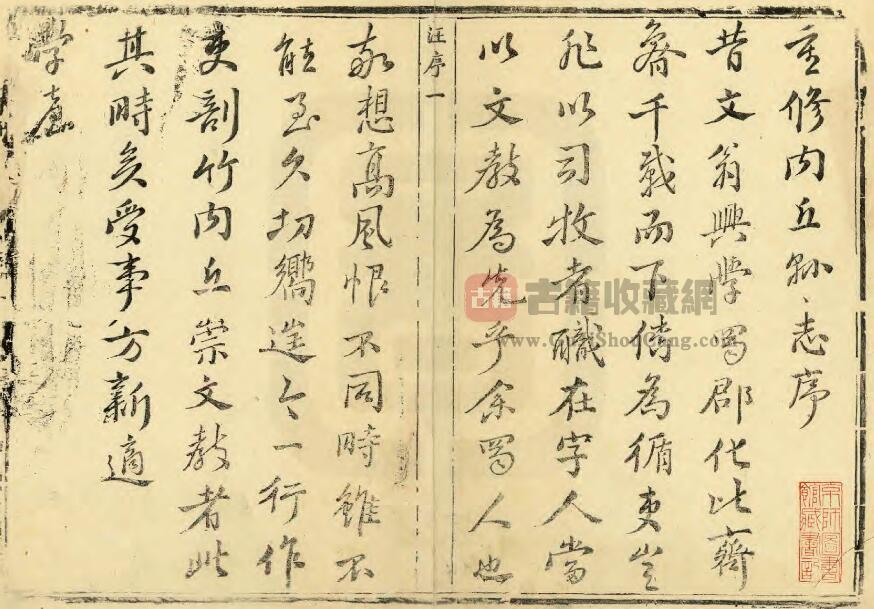 重修内丘縣志序
昔文翁興學蜀郡化比齊
魯千載而下傳為循吏豈
非以司牧者職在字人當
以文教為先乎余蜀人也
汪序一
想高風恨不同時雖不
能至久切嚮今一行作
吏剖竹内丘崇文教者此
其時矣受事方新適
學宮
京師圖書
館藏書記
古籍
古籍收藏網
www.GujiShouCang.com